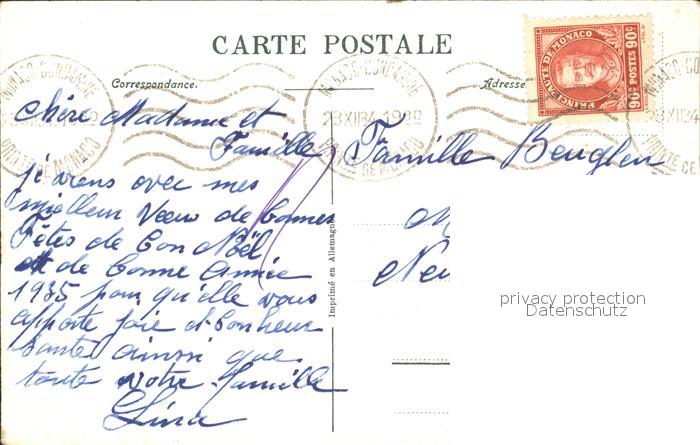 CARTE POSTALE
Correspondance.
Adresse
PRINCIPAUTÉ DE MONACO
90c POSTES 90c
MONACO-CONDAMINE
23 XII 34
PRINCIPTÉ DE MONACO
Chère Madame et
Famille
je viens avec mes
meilleur Vœux de bonnes
Fêtes de bon Noël
et de bonne Année
1935 pour qu'elle vous
apporte joie et bonheur
santé ainsi que
toute votre famille
Lina
Famille Beuglen
M
Neu
Imprimé en Allemagne
privacy protection
Datenschutz